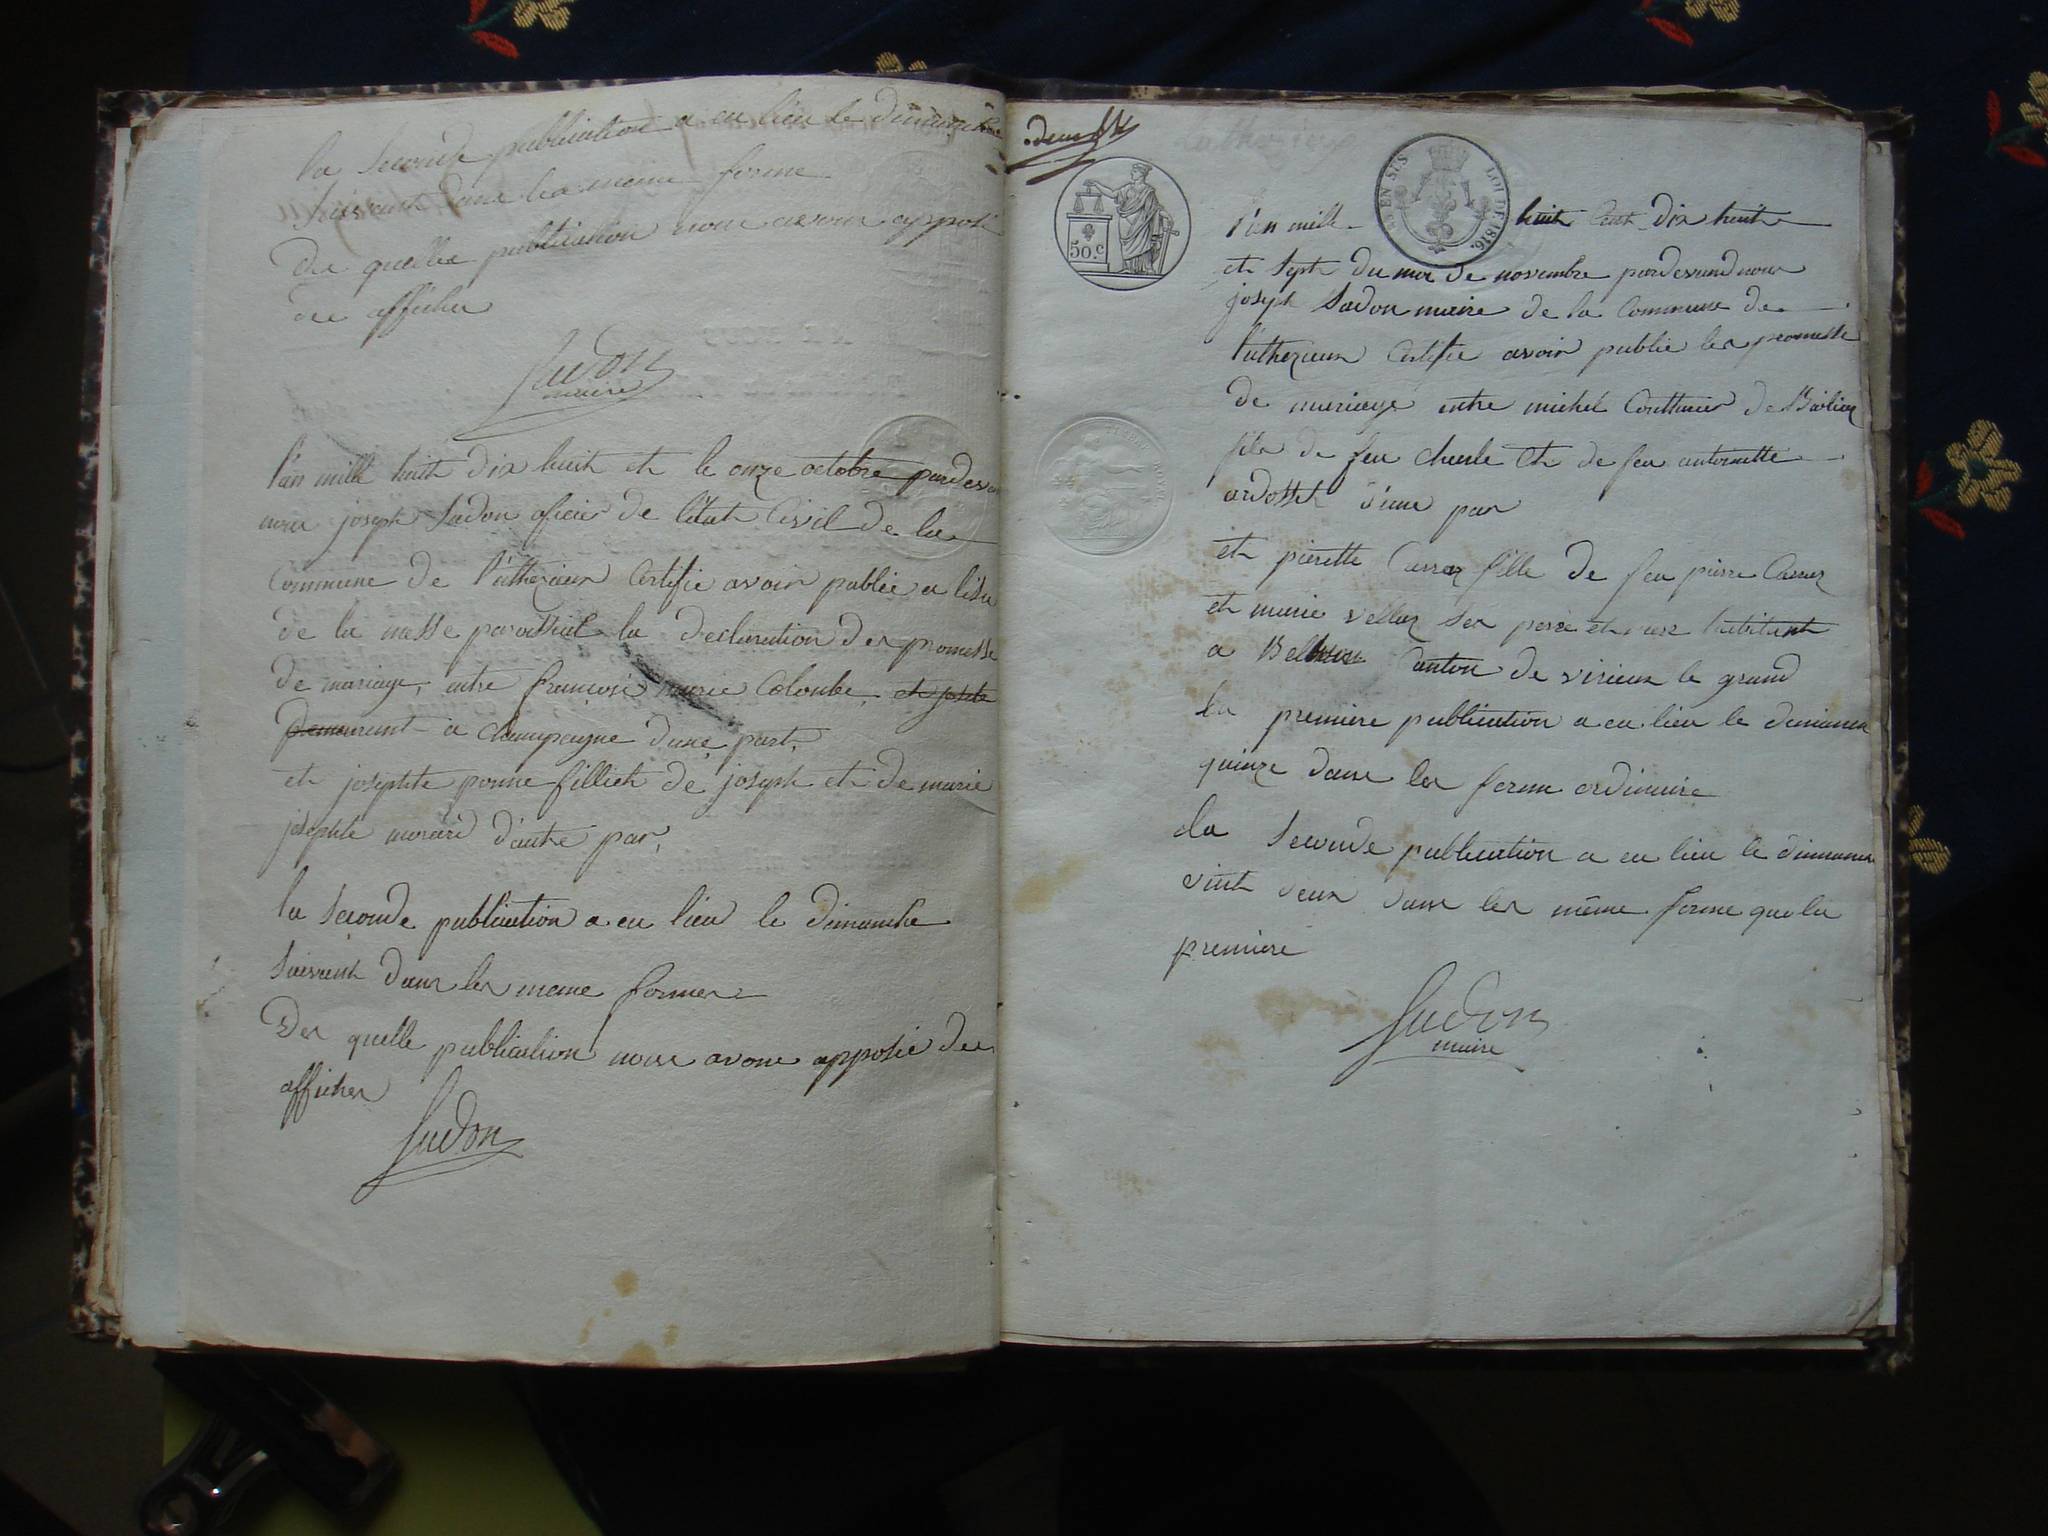 la seconde publication a eu lieu le dimanche
suivant dans la meme forme
des quelles publication nous avons apposé
des affiches
Sudon
maire
l'an mille huit dix huit et le onze octobre pardevan
nous joseph Sudon oficier de l'état Civil de la
Commune de l'uthezieux Certifie avoir publié a lisu
de la messe paroissial la declaration des promesse
de mariage, entre françois marie Colombe, et josete
demeurant a champagne d'une part,
et josephte ponne fillieh de joseph et de marie
josephte murard d'autre par,
la seconde publication a eu lieu le dimanche
suivant dans les meme formes
Des quelle publication nous avons apposée des
affiches
Sudon
deux
50.c
EN SUS LOI DE 1816.
l'an mille huit Cent dix huit
et sept du moi de novembre pardevand nous
joseph Sudon maire de la Commune de
l'uthezieux Certifie avoir publié les promesse
de mariage entre michel Coutturier de
fils de feu charle et de feu antoinette
ardosset d'une par
et pierette Carraz fille de feu pierre Carraz
et marie vellaz ses perre et mere habitant
a Canton de virieux le grand
la premiere publication a eu lieu le dimanch
quinze dans les forme ordinaire
la seconde publication a eu lieu le dimanch
vint deux dans les même forme que la
premiere
Sudon
maire